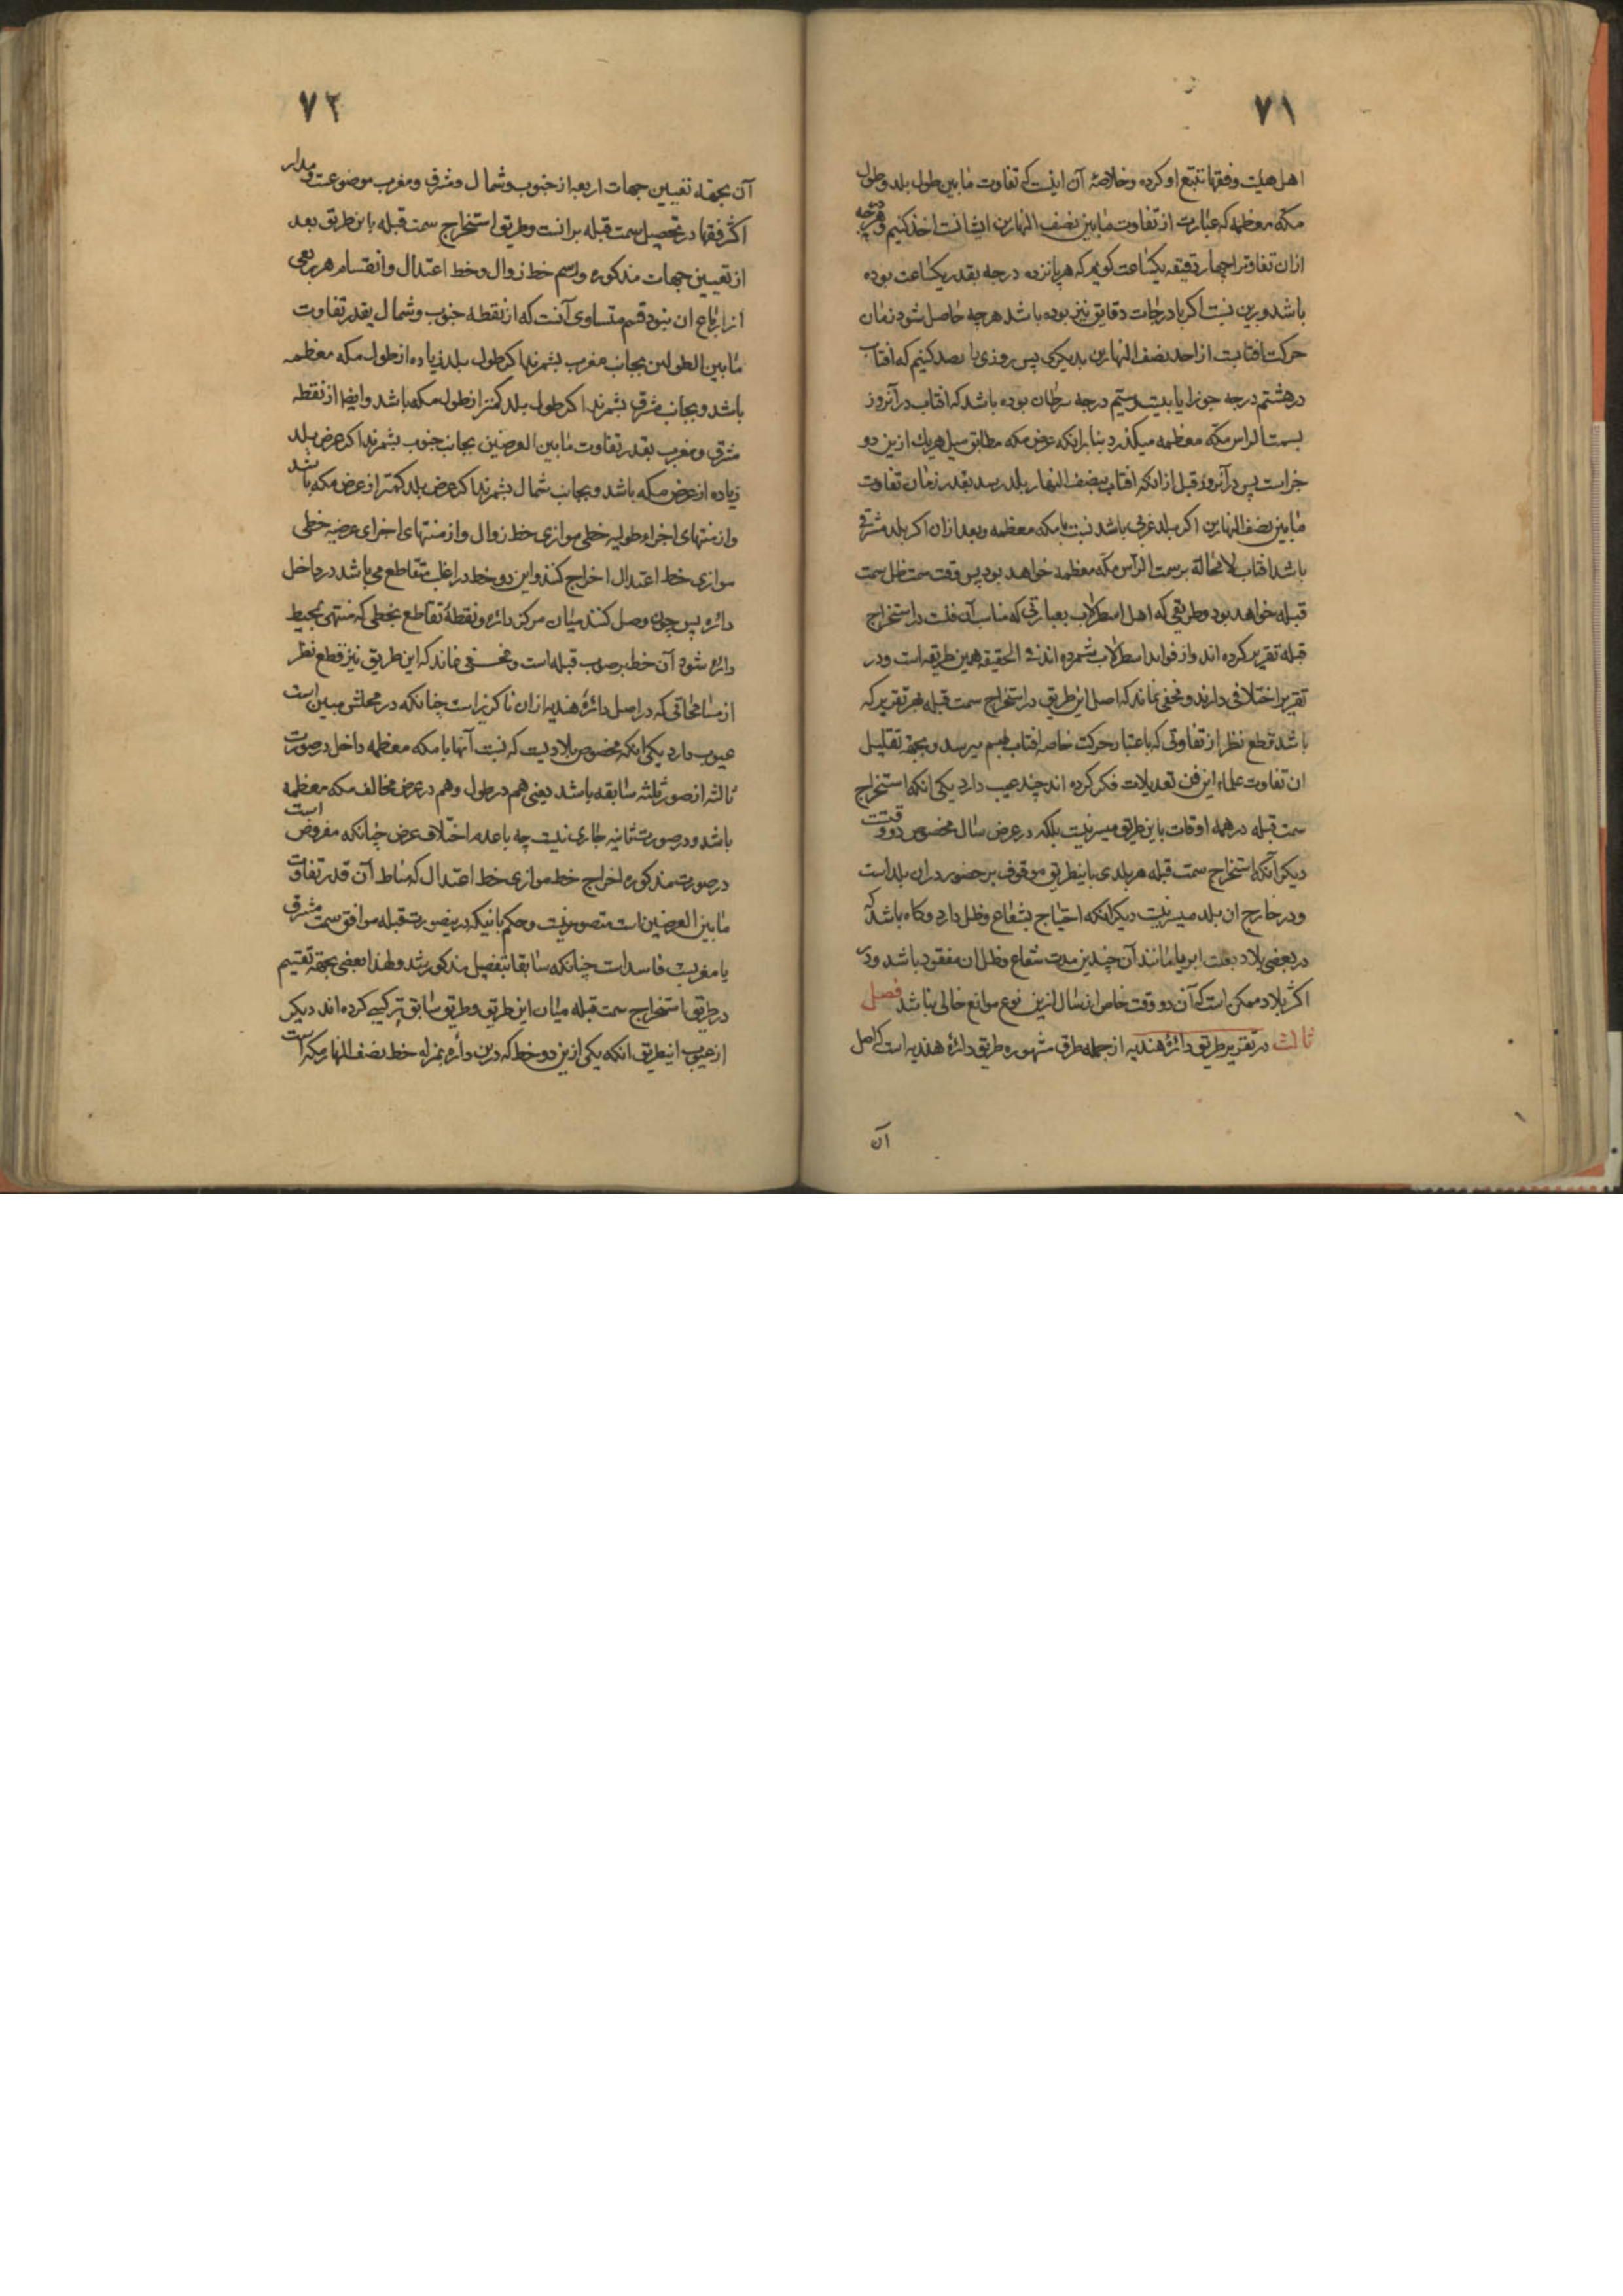 ۷۱
اهل هیئت و فقها تتبع او کرده و خلاصهٔ آن اینست که تفاوت مابین طول بلد و طول
مکه معظمه که عبارت از تفاوت مابین نصف النهارین ایشانست اخذ کنیم و هر درجه
ازان تفاوت را چهار دقیقه یکساعت کویم که هر پانزده درجه بقدر یکساعت بوده
باشد و برین نسبت اکر با درجات دقایق نیز بوده باشد هرچه حاصل شود زمان
حرکت افتابست از احد نصف النهارین بدیکری پس روزی را رصد کنیم که افتاب
در هشتم درجه جوزا یا بیست و سیم درجه سرطان بوده باشد که افتاب در آنروز
بسمت الراس مکه معظمه میکذرد بنابرانکه عرض مکه مطابق میل هریك ازین دو
جزاست پس در آنروز قبل ازانکه افتاب بنصف النهار بلد رسد بقدر زمان تفاوت
مابین نصف النهارین اکر بلد غربی باشد نسبت بامکه معظمه و بعد ازان اکر بلد شرقی
باشد افتاب لامحالة بر سمت الرأس مکه معظمه خواهد بود پس وقت سمت ظل سمت
قبله خواهد بود و طریقی که اهل اسطرلاب بعبارتی که مناسب آن فنست در استخراج
قبله تقریر کرده اند و از فواید اسطرلاب شمرده اند فی الحقیقه همین طریقه است و در
تقریر اختلافی دارند و مخفی نماند که اصل این طریق در استخراج سمت قبله بهر تقریر که
باشد قطع نظر از تفاوتی که باعتبار حرکت خاصه افتاب بهم میرسد و بجهة تقلیل
ان تفاوت علماء این فن تعدیلات فکر کرده اند چند عیب دارد یکی انکه استخراج
سمت قبله در همه اوقات باین طریق میسر نیست بلکه در عرض سال مخصوص دو وقت
دیکر آنکه استخراج سمت قبله هر بلدی باینطریق موقوف بر حضور دران بلد است
و در خارج ان بلد میسر نیست دیکر انکه احتیاج بشعاع و ظل دارد و کاه باشد که
در بعضی بلاد بعلت ابر یا مانند آن چندین مدت شعاع و ظل ان مفقود باشد و در
اکثر بلاد ممکن است که آن دو وقت خاص از سال ازین نوع موانع خالی نباشد فصل
ثالث در تقریر طریق دائرهٔ هندیه از جمله طرق مشهوره طریق دائرهٔ هندیه است که اصل
آن
۷۲
آن بجهة تعیین جهات اربعه از جنوب و شمال و مشرق و مغرب موضوعست و مدار
اکثر فقها در تحصیل سمت قبله برانست و طریق استخراج سمت قبله باین طریق بعد
از تعیین جهات مذکوره و رسم خط زوال و خط اعتدال و انقسام هر ربعی
از ارباع ان بنود قسم متساوی آنست که از نقطه جنوب و شمال بقدر تفاوت
مابین الطولین بجانب مغرب بشمرند اکر طول بلد زیاده از طول مکه معظمه
باشد و بجانب مشرق بشمرند اکر طول بلد کمتر از طول مکه باشد و ایضا از نقطه
مشرق و مغرب بقدر تفاوت مابین العرضین بجانب جنوب بشمرند اکر عرض بلد
زیاده از عرض مکه باشد و بجانب شمال بشمرند اکر عرض بلد کمتر از عرض مکه باشد
و از منتهای اجزاء طولیه خطی موازی خط زوال و از منتهای اجزای عرضیه خطی
موازی خط اعتدال اخراج کنند و این دو خط در اغلب متقاطع می باشد در داخل
دائره پس چون وصل کنند میان مرکز دائره و نقطهٔ تقاطع بخطی که منتهی بمحیط
دائره شود آن خط بر صوب قبله است و مخفی نماند که این طریق نیز قطع نظر
از مسامحاتی که در اصل دائرهٔ هندیه ازان ناکزیر است چنانکه در محلش مبین است
عیوب دارد یکی انکه مخصوص بلادیست که نسبت آنها با مکه معظمه داخل در صورت
ثالثه از صور ثلثه سابقه باشد یعنی هم در طول و هم در عرض مخالف مکه معظمه
باشد و در صورت ثانیه جاری نیست چه با عدم اختلاف عرض چنانکه مفروض است
در صورت مذکوره اخراج خط موازی خط اعتدال که مناط آن قدر تفاوت
مابین العرضین است متصور نیست و حکم بانیکه درینصورت قبله موافق سمت مشرق
یا مغربست فاسد است چنانکه سابقا بتفصیل مذکور شد و لهذا بعضی بجهة تقسیم
در طریق استخراج سمت قبله میان این طریق و طریق سابق ترکیبی کرده اند دیکر
از عیوب اینطریق انکه یکی ازین دو خط که درین دائره بمنزله خط نصف النهار مکه است